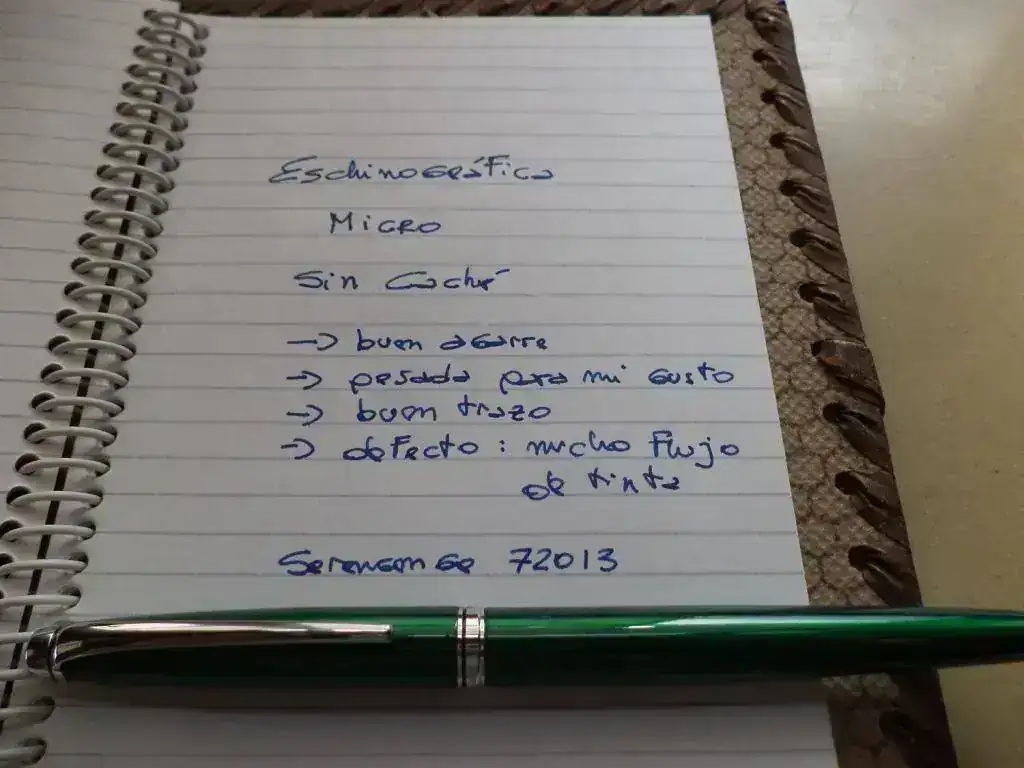 Eschinográfica
Micro
Sin Caché
→ buen agarre
→ pesada para mi gusto
→ buen trazo
→ defecto: mucho flujo
de tinta
72013